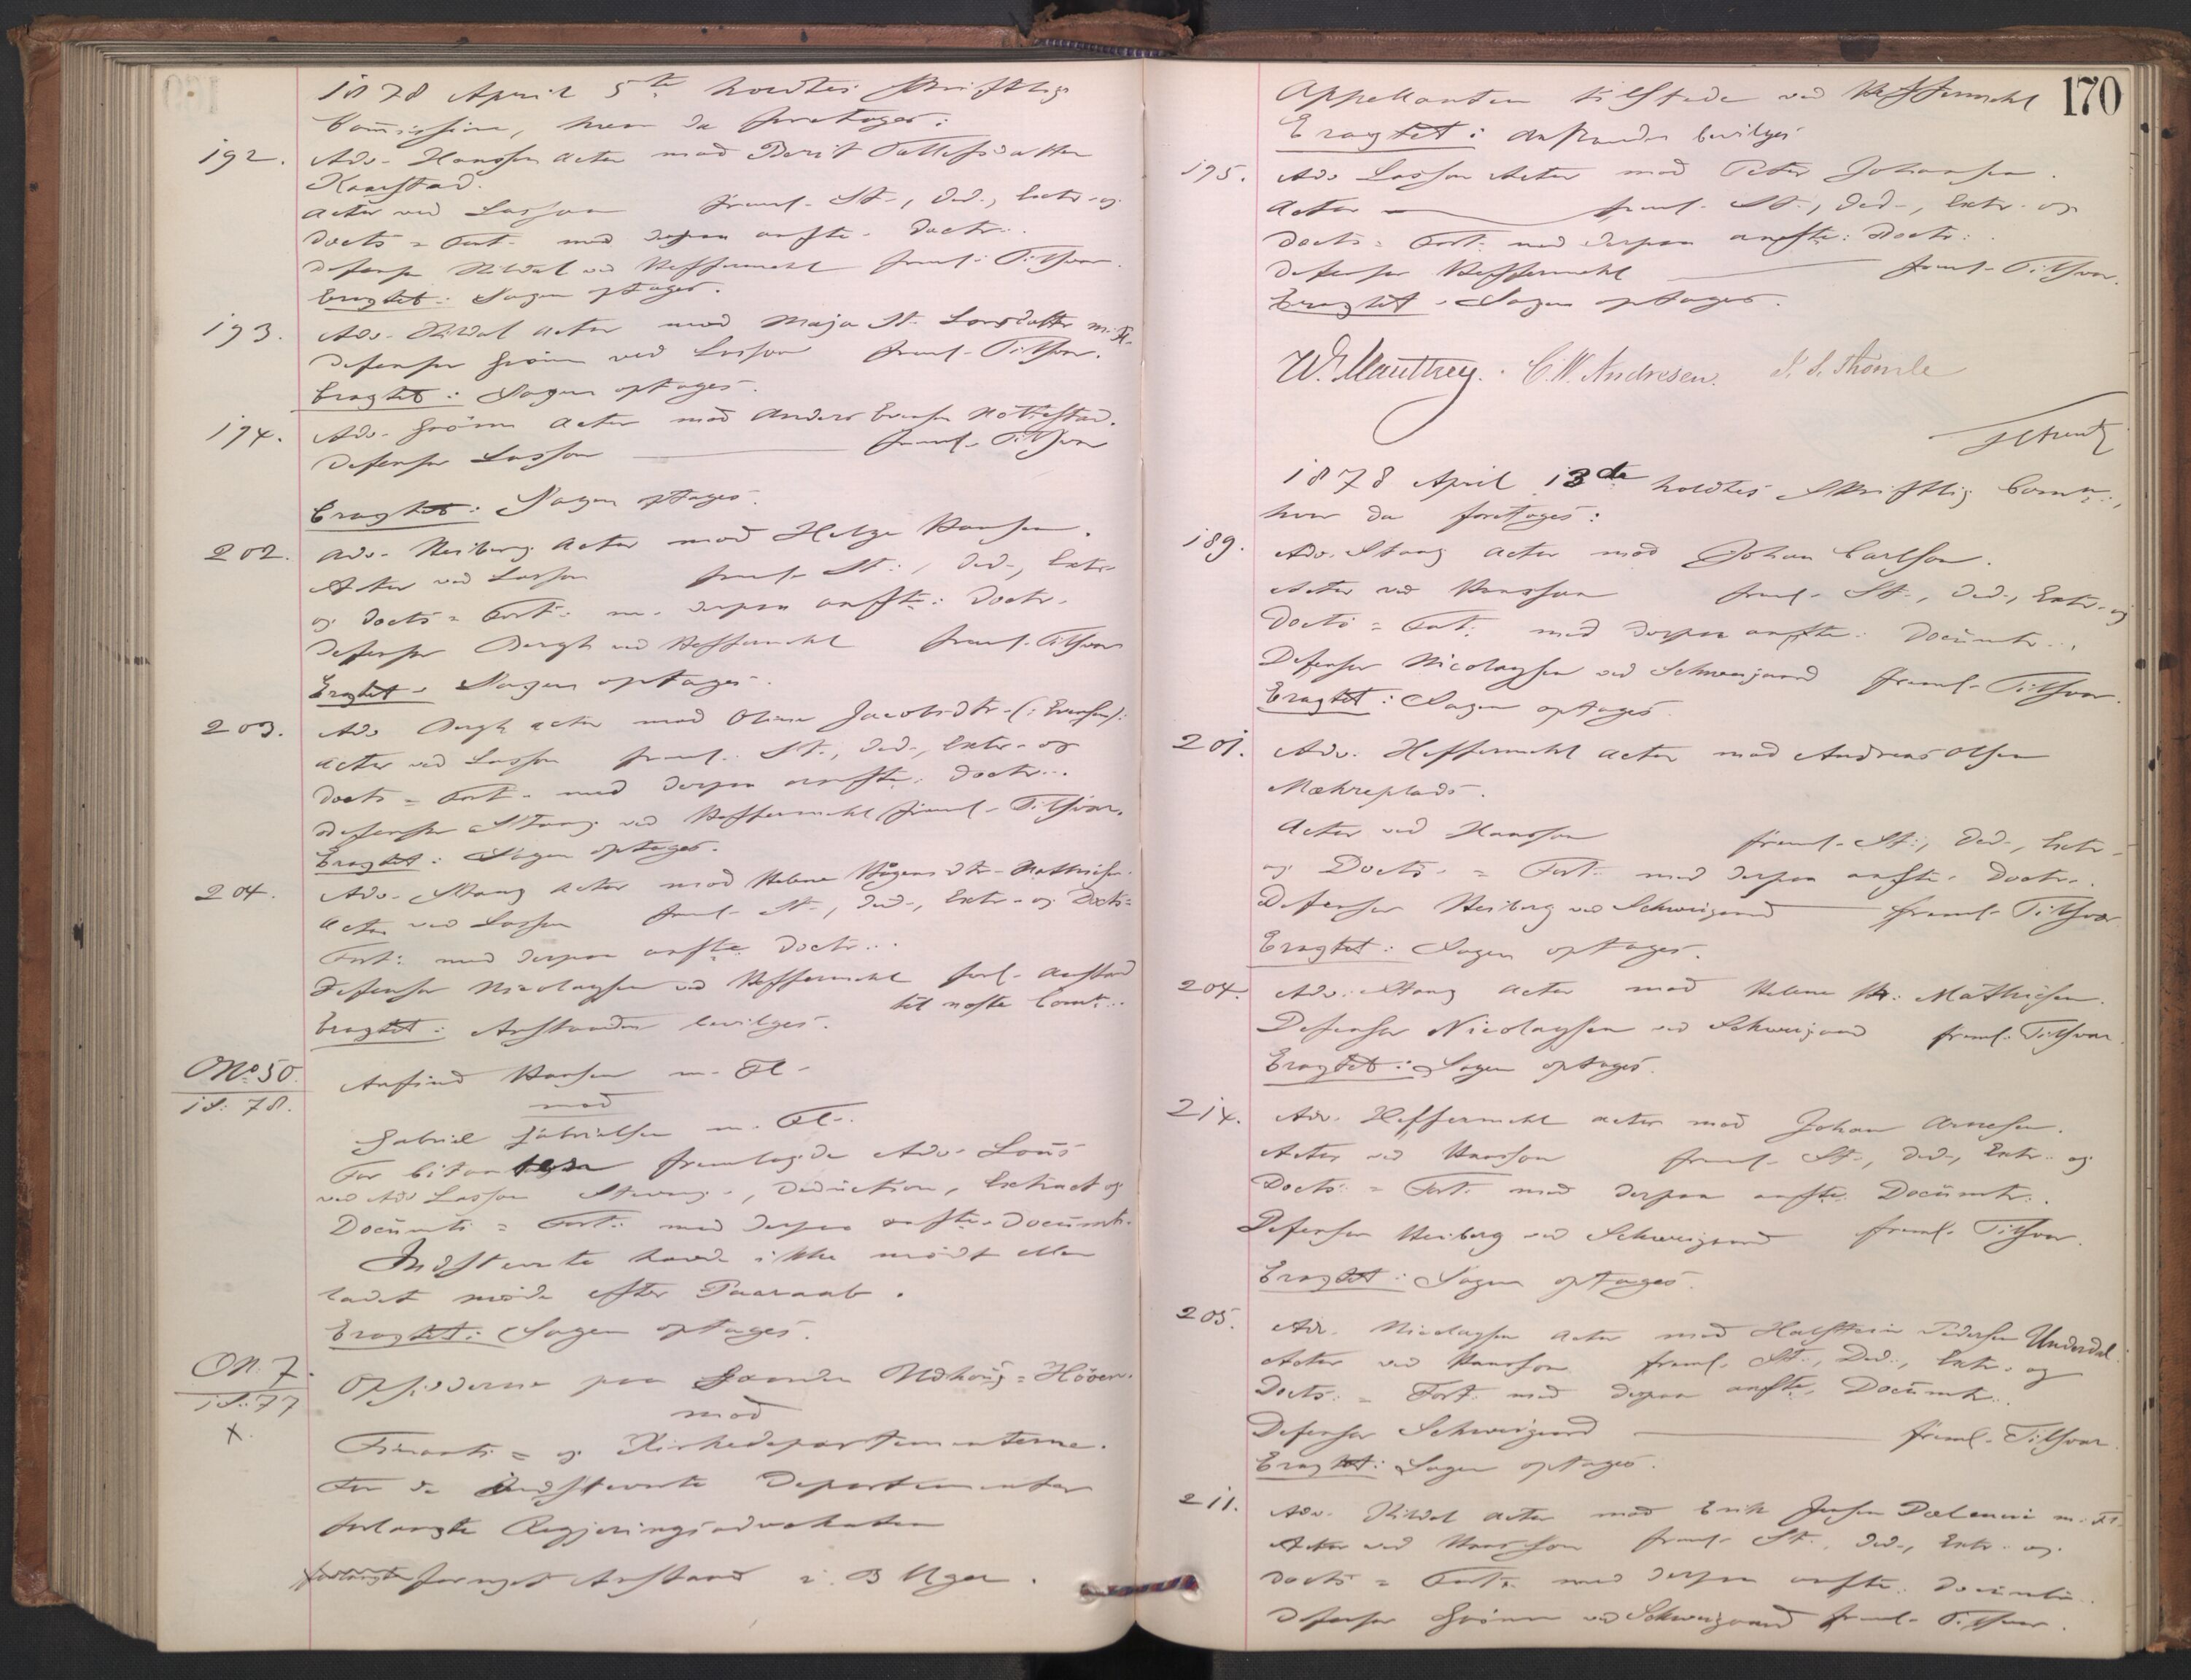 1878 April 5te holdtes Skriftlig
Commission, hvor da foretoges:
192. Adv. Hansson Actor mod Berit Tollefsdatter
Kaarstad.
Actor ved Lasson freml. St., Ded., Extr. og
Docts = Fort. med derpaa anfte. Doctr.
Defensor Kildal ved Heffermehl freml. Tilsvar.
Eragtet: Sagen optages.
193. Adv. Kildal Actor mod Maja St. Larsdatter m. Fl.
Defensor Grönn ved Lasson freml. Tilsvar.
Eragtet: Sagen optages.
194. Adv. Grönn Actor mod Anders Evensen Nöttestad.
Defensor Lasson freml. Tilsvar
Eragtet: Sagen optages.
202. Adv. Heiberg Actor mod Helge Hansen.
Actor ved Lasson freml. St., Ded., Extr.
og Docts = Fort. m. derpaa anfte. Doctr.
Defensor Bergh ved Heffermehl freml. Tilsvar
Eragtet: Sagen optages.
203. Adv. Bergh Actor mod Oline Jacobsdtr. (: Evensen):
Actor ved Lasson freml. St., Ded., Extr. og
Docts = Fort. med derpaa anfte. Doctr.
Defensor Stang ved Heffermehl freml. Tilsvar.
Eragtet: Sagen optages.
204. Adv. Stang Actor mod Helene Haagensdtr. Mathisen.
Actor ved Lasson freml. St., Ded., Extr. og Docts =
Fort. med derpaa anfte. Doctr.
Defensor Nicolaysen ved Heffermehl forl. Anstand
til næste Comn.
Eragtet: Anstanden bevilges.
No 50 Anfind Hansen m. Fl.
i S: 78. mod
Gabriel Gabrielsen m. Fl.
For Citanterne fremlagde Adv. Lous
ved Adv Lasson Stevning, Deduction, Extract og
Documts = Fort. med derpaa anfte. Documtr.
Indstevnte havde ikke mödt eller
ladet möde efter Paaraab.
Eragtet: Sagen optages.
N. 7. Opsidderne paa Gaarden Udhoug = Höven.
i S: 77 mod
X. Finants = og Kirkedepartementerne.
For de Indstevnte Departementer
forlangte Regjeringsadvokaten
fornyet Anstand i 3 Uger.
170
Appellanten tilstede ved Heffermehl
Eragtet: Anstanden bevilges
195. Adv Lasson Actor mod Peter Johansen.
Actor freml. St., Ded., Extr. og
Docts = Fort. med derpaa anfte. Doctr.
Defensor Heffermehl freml. Tilsvar.
Eragtet: Sagen optages.
C. W. Andresen. J. S. Thomle
1878 April 13de holdtes Skriftlig Comn.,
hvor da foretoges:
189. Adv. Stang Actor mod Johan Carlson.
Actor ved Hansson freml. St., Ded., Extr. og
Docts = Fort. med derpaa anfte. Documtr.,
Defensor Nicolaysen ved Schweigaard freml. Tilsvar.
Eragtet: Sagen optages.
201. Adv. Heffermehl Actor mod Andreas Olsen
Mæhreplads.
Actor ved Hansson freml. St., Ded., Extr.
og Docts = Fort. med derpaa anfte. Doctr.
Defensor Heiberg ved Schweigaard freml. Tilsvar
Eragtet: Sagen optages.
204. Adv. Stang Actor mod Helene H. Mathisen.
Defensor Nicolaysen ved Schweigaard freml. Tilsvar.
Eragtet: Sagen optages.
214. Adv. Heffermehl Actor mod Johan Arnesen.
Actor ved Hansson freml. St., Ded., Extr. og
Docts = Fort. med derpaa anfte. Documtr.
Defensor Heiberg ved Schweigaard freml. Tilsvar.
Eragtet: Sagen optages.
205. Adv. Nicolaysen Actor mod Halstein Pedersen Underdal.
Actor ved Hansson freml. St., Ded., Extr. og
Docts = Fort. med derpaa anfte. Documtr.
Defensor Schweigaard freml. Tilsvar.
Eragtet: Sagen optages.
211. Adv. Kildal Actor mod Erik Jensen m. Fl.
Actor ved Hansson freml. St., Ded., Extr. og
Docts = Fort. med derpaa anfte. Documtr.
Defensor Grönn ved Schweigaard freml. Tilsvar.